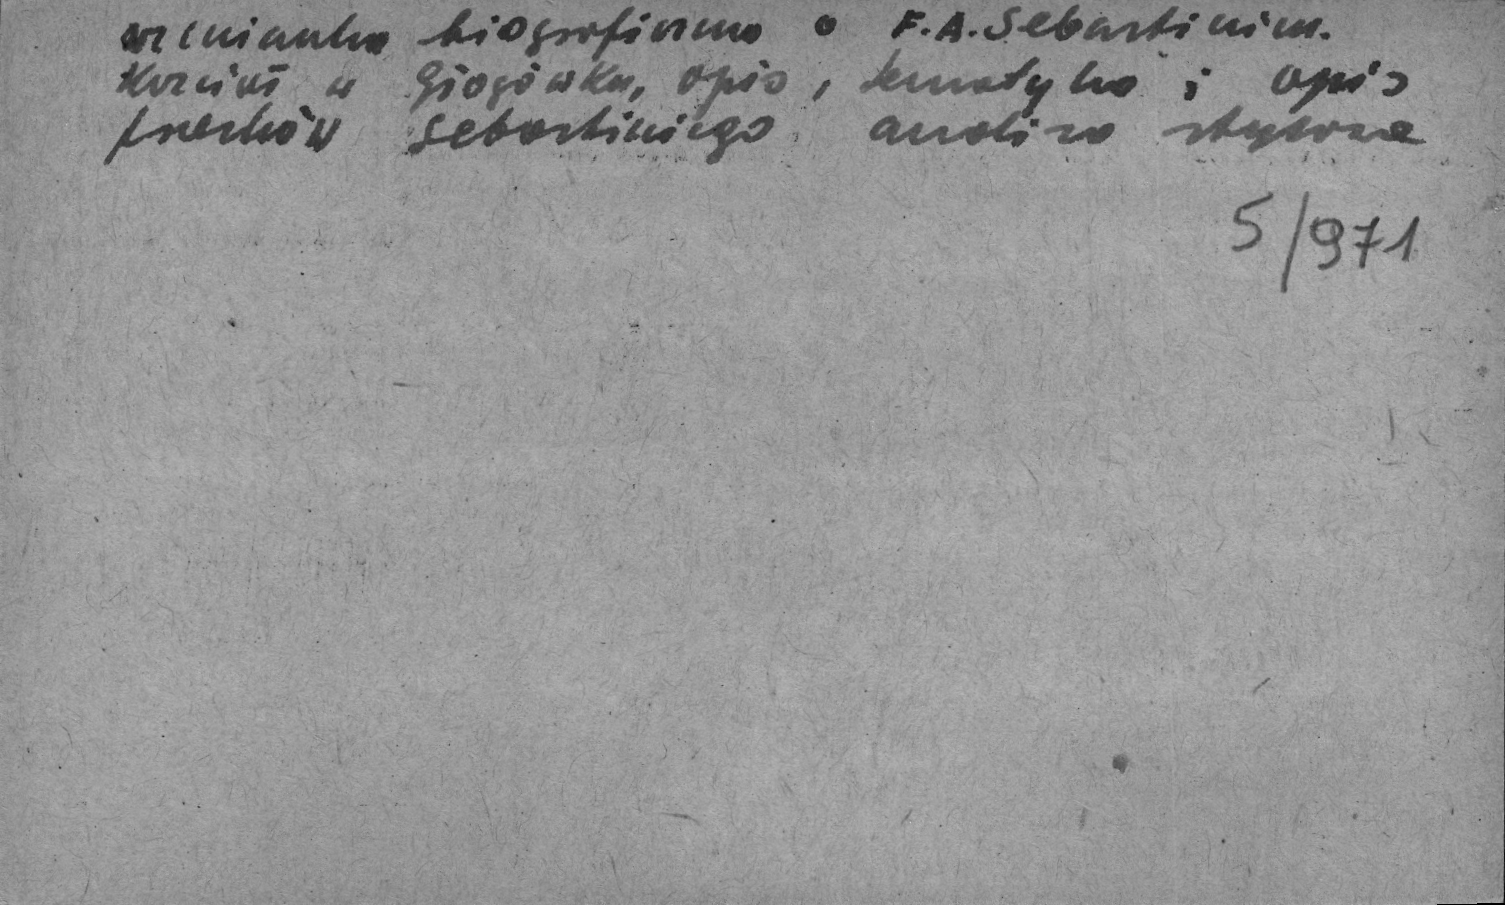 wzmianka biograficzna o F.A. Sebastinim.
Kościół w Głogówku, opis, tematyka i opis
fresków Sebastiniego analiza stylowa
5/971